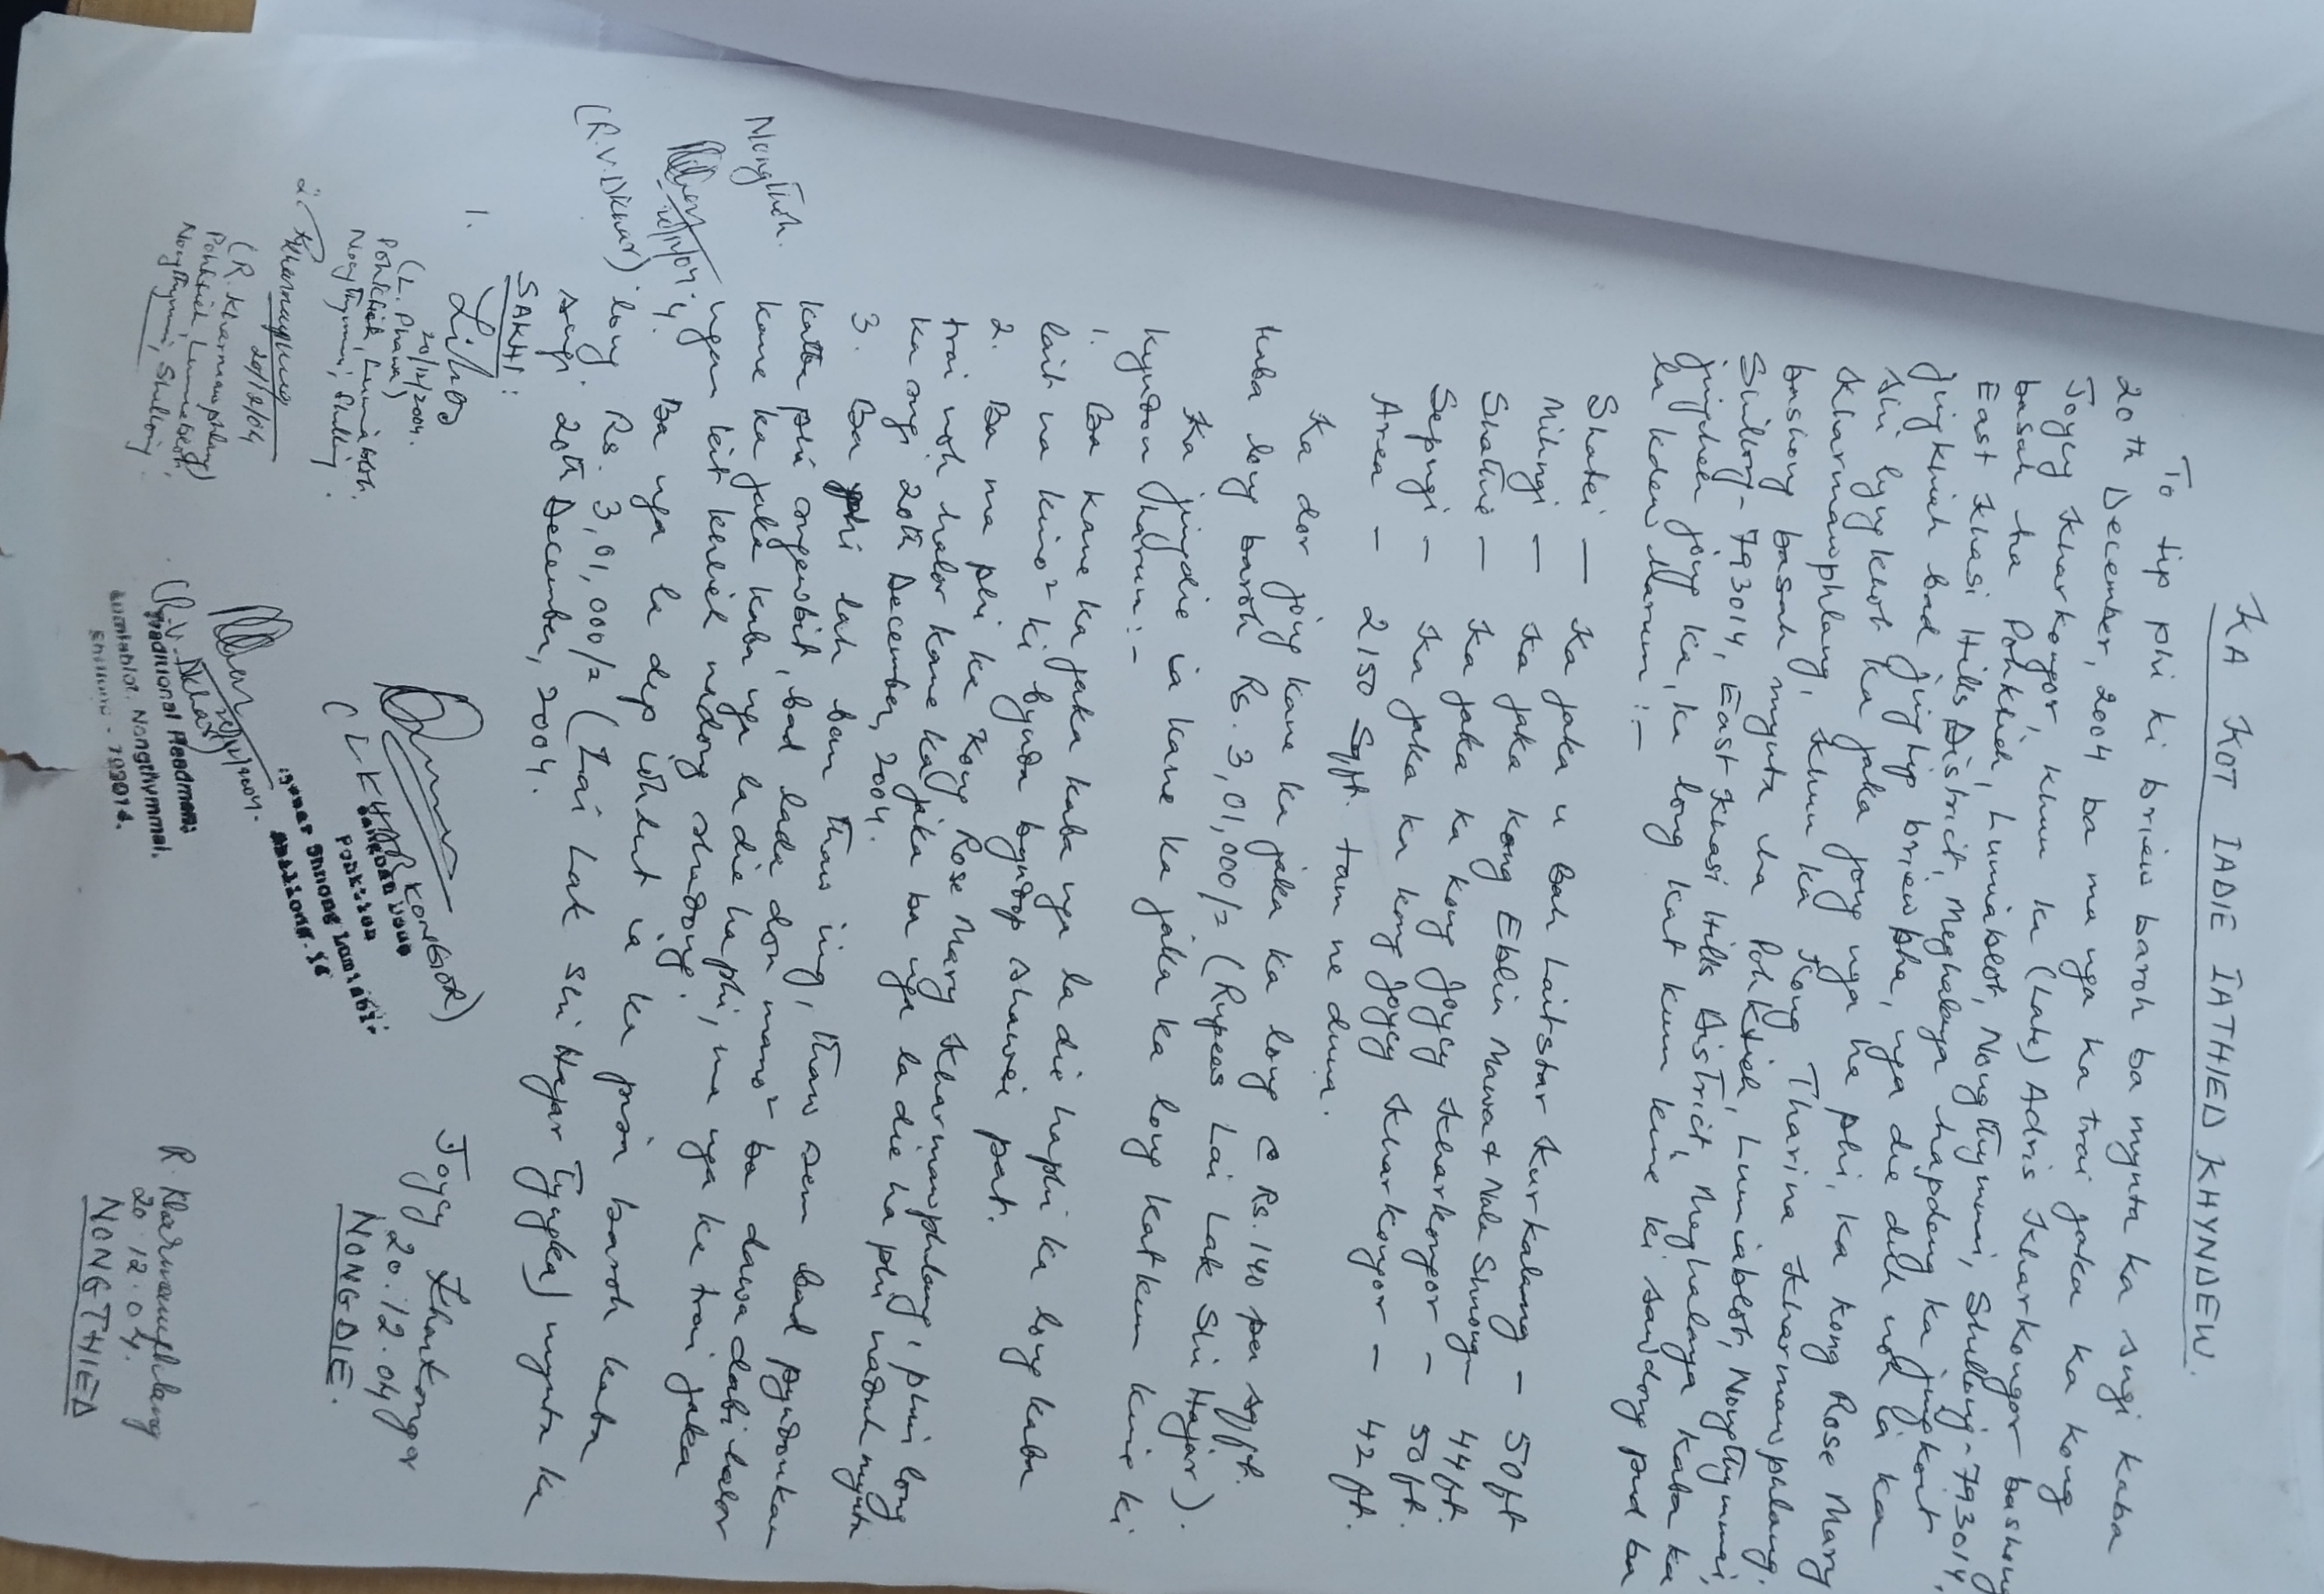 KA KOT IADIE IATHIED KHYNDEW.
To tip phi ki briew baroh ba mynta ka sngi kaba
20th December, 2004 ba ma nga ka trai jaka ka kong
Joycy Kharkongor, khun ka (Late) Adris Kharkongor bashong
basah ha Pohktieh, Lumiablot, Nongthymmai, Shillong-793014,
East Khasi Hills District, Meghalaya hapdeng ka jingkoit
jingkhiah bad jingtip briew bha, nga die duh noh ia ka
shi lyngkhot ka jaka jong nga ha phi, ka kong Rose Mary
Kharmawphlang, khun ka Kong Tharina Kharmawphlang.
bashong basah mynta ha Pohktieh, Lumiablot, Nongthymmai,
Shillong-793014, East Khasi Hills District, Meghalaya kaba ka
jingheh jong ka, ka long kat kum kine ki saw dong pud ba
la kdew harum :-
Shatei — Ka jaka u Bah Laitstar Kurkalang — 50ft
Mihngi — Ka jaka kong Eblin Mawa & Nala Shnong — 44ft.
Shathie — Ka jaka ka kong Joycy Kharkongor — 50ft.
Sepngi — Ka jaka ka kong Joycy Kharkongor — 42ft.
Area — 2150 Sqft. tam ne duna.
Ka dor jong kane ka jaka ka long @ Rs. 140 per sqft.
kaba long baroh Rs. 3,01,000/= (Rupees Lai Lak Shi Hajar).
Ka jingdie ia kane ka jaka ka long katkum kine ki
kyndon harum :-
1. Ba kane ka jaka kaba nga la die haphi ka long kaba
lait na kino² ki bynda byndop shawei pat.
2. Ba ma phi ka Kong Rose Mary Kharmawphlang, phin long
trai noh halor kane ka jaka ba nga la die ha phi naduh mynta
ka sngi 20th December, 2004.
3. Ba phi lah ban thaw ïing, thaw sem bad pyndonkam
katba phi sngewbit, bad lada don mano² ba dawa dabi halor
kane ka jaka kaba nga la die haphi, ma nga ka trai jaka
ngan kit khlieh nadong shadong.
4. Ba nga la dep ïohdut ia ka pisa baroh kaba
long Rs. 3,01,000/= (Lai Lak Shi Hajar Tyngka) mynta ka
sngi 20th December, 2004.
Nongthoh.
20/12/04
(R.V. Dkhar)
SAKHI:
1.
20/12/2004.
(L. Phawa)
Pohktieh, Lumiablot.
Nongthymmai, Shillong.
2. Kharmawphlang
20/12/04
(R. Kharmawphlang)
Pohktieh, Lumiablot,
Nongthymmai, Shillong.
Joycy Kharkongor
20.12.04
NONGDIE.
R. Kharmawphlang
20.12.04.
NONGTHIED
20/12/2004.
(R.V. Dkhar)
Traditional Headman
Lumiablot. Nongthymmai.
Shillong - 793014.